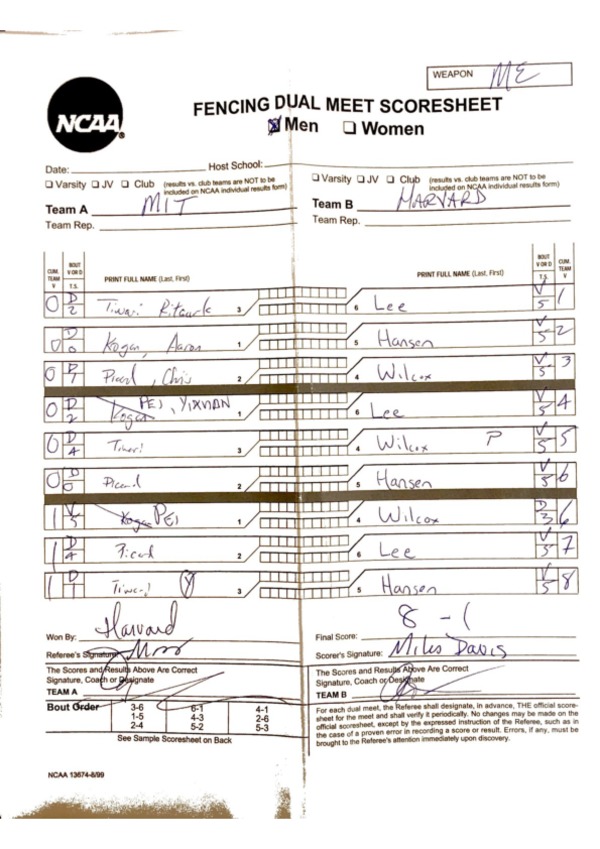 WEAPON ME
NCAA
FENCING DUAL MEET SCORESHEET
Men Women
Date: Host School:
Varsity JV Club (results vs. club teams are NOT to be included on NCAA individual results form)
Varsity JV Club (results vs. club teams are NOT to be included on NCAA individual results form)
Team A MIT Team B HARVARD
Team Rep. Team Rep.
CUM. TEAM V BOUT V OR D T.S. PRINT FULL NAME (Last, First) PRINT FULL NAME (Last, First) BOUT V OR D T.S. CUM. TEAM V
0 D 2 Tiwari 3 6 Lee V 5 1
0 D 0 Kogan, Aaron 1 5 Hansen V 5 2
0 D 1 Picard, Chris 2 4 Wilcox V 5 3
0 D 2 Kogan PEI, YIXUAN 1 6 Lee V 5 4
0 D 4 Tiwari 3 4 Wilcox P V 5 5
0 D 0 Picard 2 5 Hansen V 5 6
1 V 5 Kogan PEI 1 4 Wilcox D 3 6
1 D 4 Picard 2 6 Lee V 5 7
1 D 1 Tiwari Y 3 5 Hansen V 5 8
Won By: Harvard Final Score: 8 - 1
Referee's Signature: Scorer's Signature: Miles Davis
The Scores and Results Above Are Correct
Signature, Coach or Designate
TEAM A
The Scores and Results Above Are Correct
Signature, Coach or Designate
TEAM B
Bout Order 3-6 6-1 4-1
1-5 4-3 2-6
2-4 5-2 5-3
See Sample Scoresheet on Back
For each dual meet, the Referee shall designate, in advance, THE official score-
sheet for the meet and shall verify it periodically. No changes may be made on the
official scoresheet, except by the expressed instruction of the Referee, such as in
the case of a proven error in recording a score or result. Errors, if any, must be
brought to the Referee's attention immediately upon discovery.
NCAA 13674-8/99